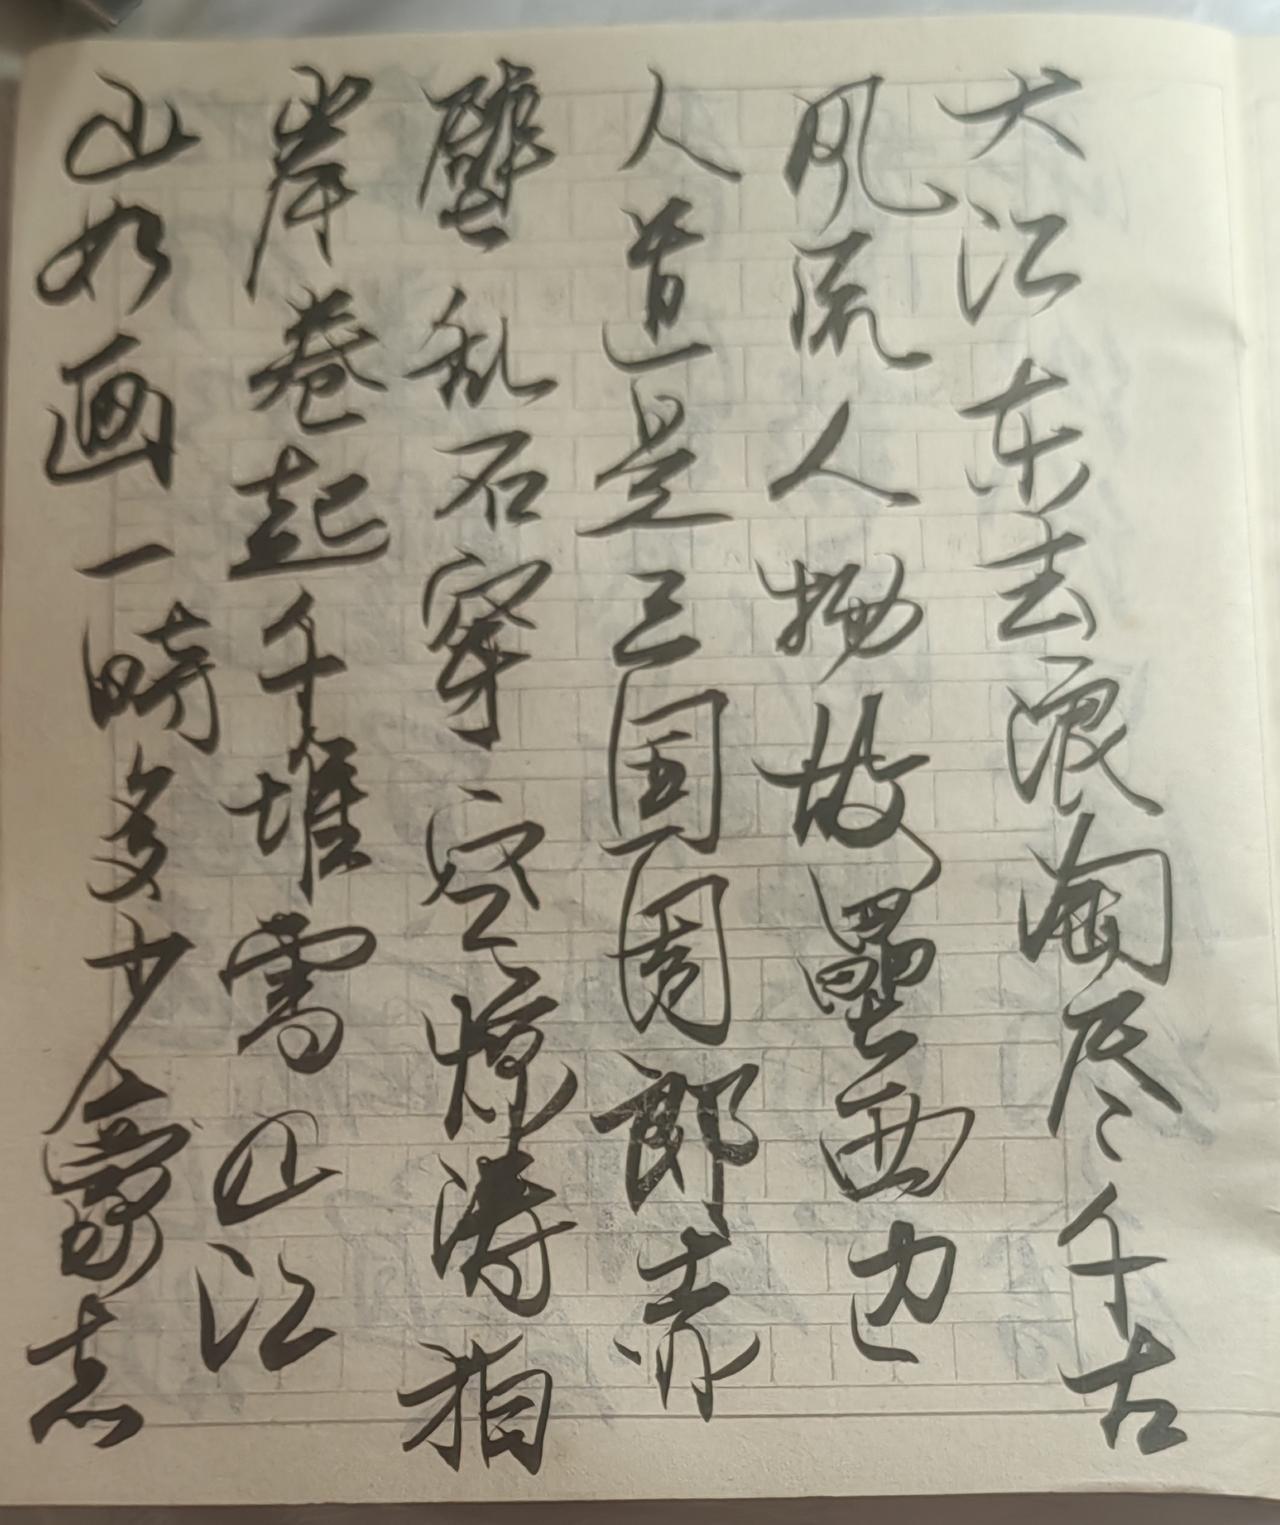 大江东去浪淘尽千古
风流人物故垒西边
人道是三国周郎赤
壁乱石穿空惊涛拍
岸卷起千堆雪山江
山如画一時多少豪志